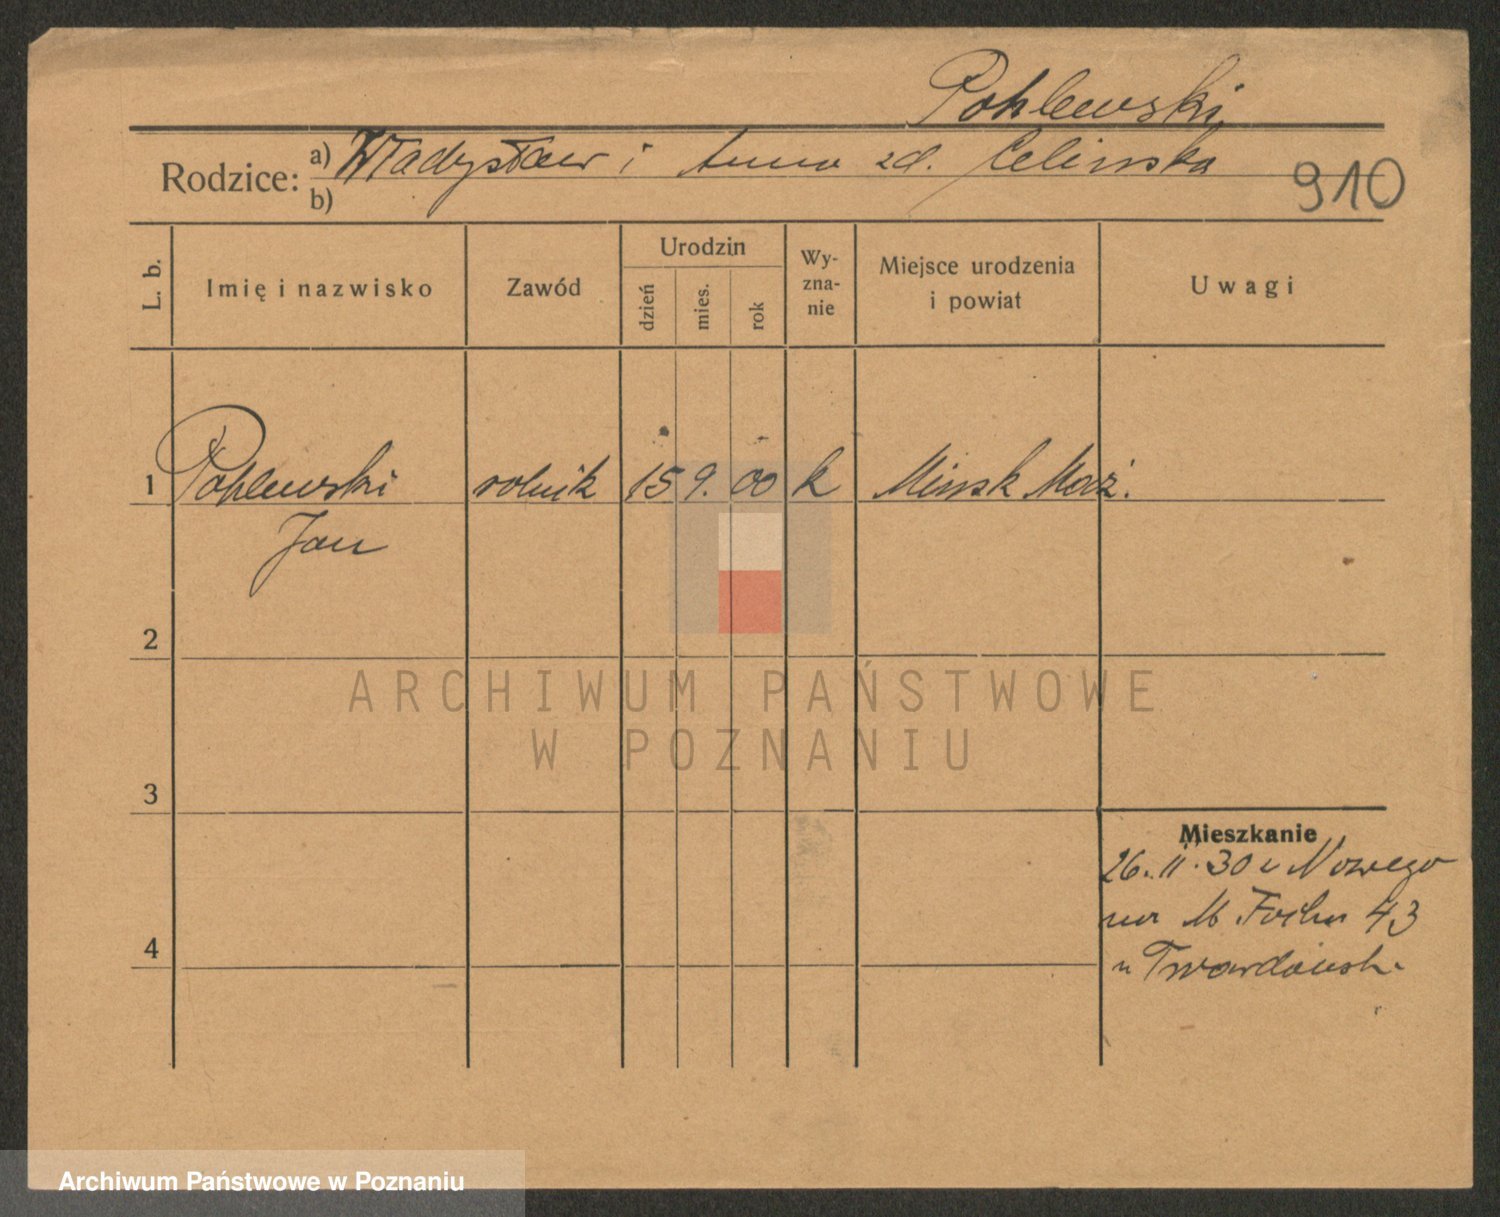 Pohlewski
Rodzice: a) Władysław i Anna zd. Celinska
b)
910
L. b.
Imię i nazwisko
Zawód
Urodzin
dzień
mies.
rok
Wy-
zna-
nie
Miejsce urodzenia
i powiat
Uwagi
1 Pohlewski rolnik 15 9. 00 k Minsk Maz.
Jan
2
3
4
ARCHIWUM PAŃSTWOWE
W POZNANIU
Mieszkanie
26. II. 30 z Nowego
M. Focha 43
u
Archiwum Państwowe w Poznaniu